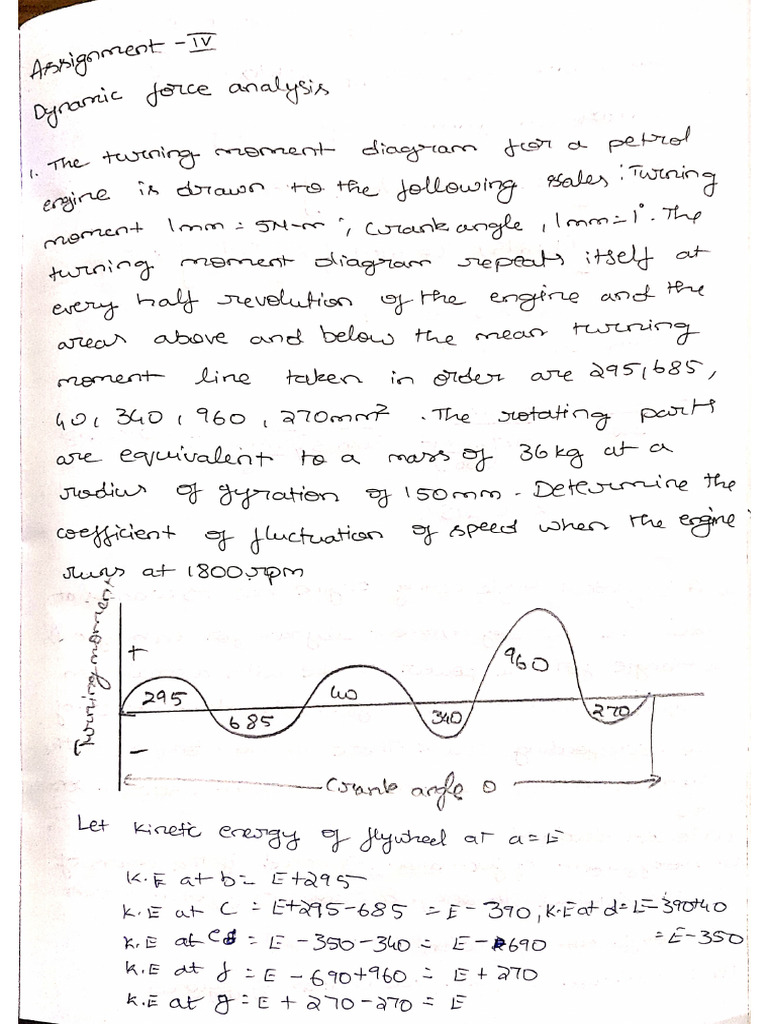 Assignment - IV
Dynamic force analysis
1. The turning moment diagram for a petrol
engine is drawn to the following sales : Turning
moment 1mm = 5N-m ; Crank angle , 1mm=1°. The
turning moment diagram repeats itself at
every half revolution of the engine and the
areas above and below the mean turning
moment line taken in order are 295, 685,
40, 340, 960, 270mm². The rotating parts
are equivalent to a mass of 36kg at a
radius of gyration of 150mm. Determine the
coefficient of fluctuation of speed when the engine
runs at 1800.rpm
Turning moment
+
295
685
40
340
960
270
-
Crank angle θ
Let kinetic energy of flywheel at a = E
K.E at b = E+295
K.E at C = E+295-685 = E-390, K.E at d = E-390+40
= E-350
K.E at e = E-350-340 = E-690
K.E at f = E-690+960 = E+270
K.E at g = E+270-270 = E